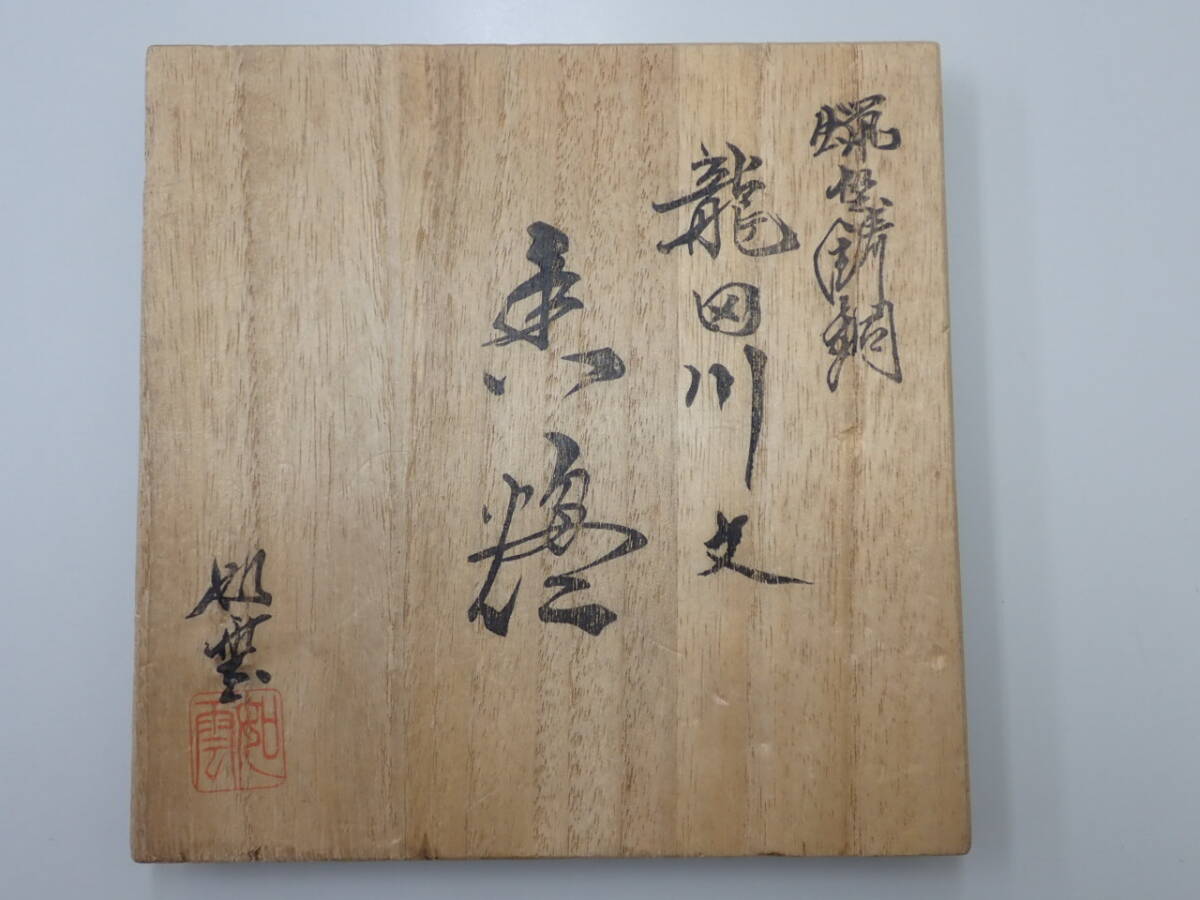 蝋型鋳銅
龍田川文
香爐
如雲
如雲